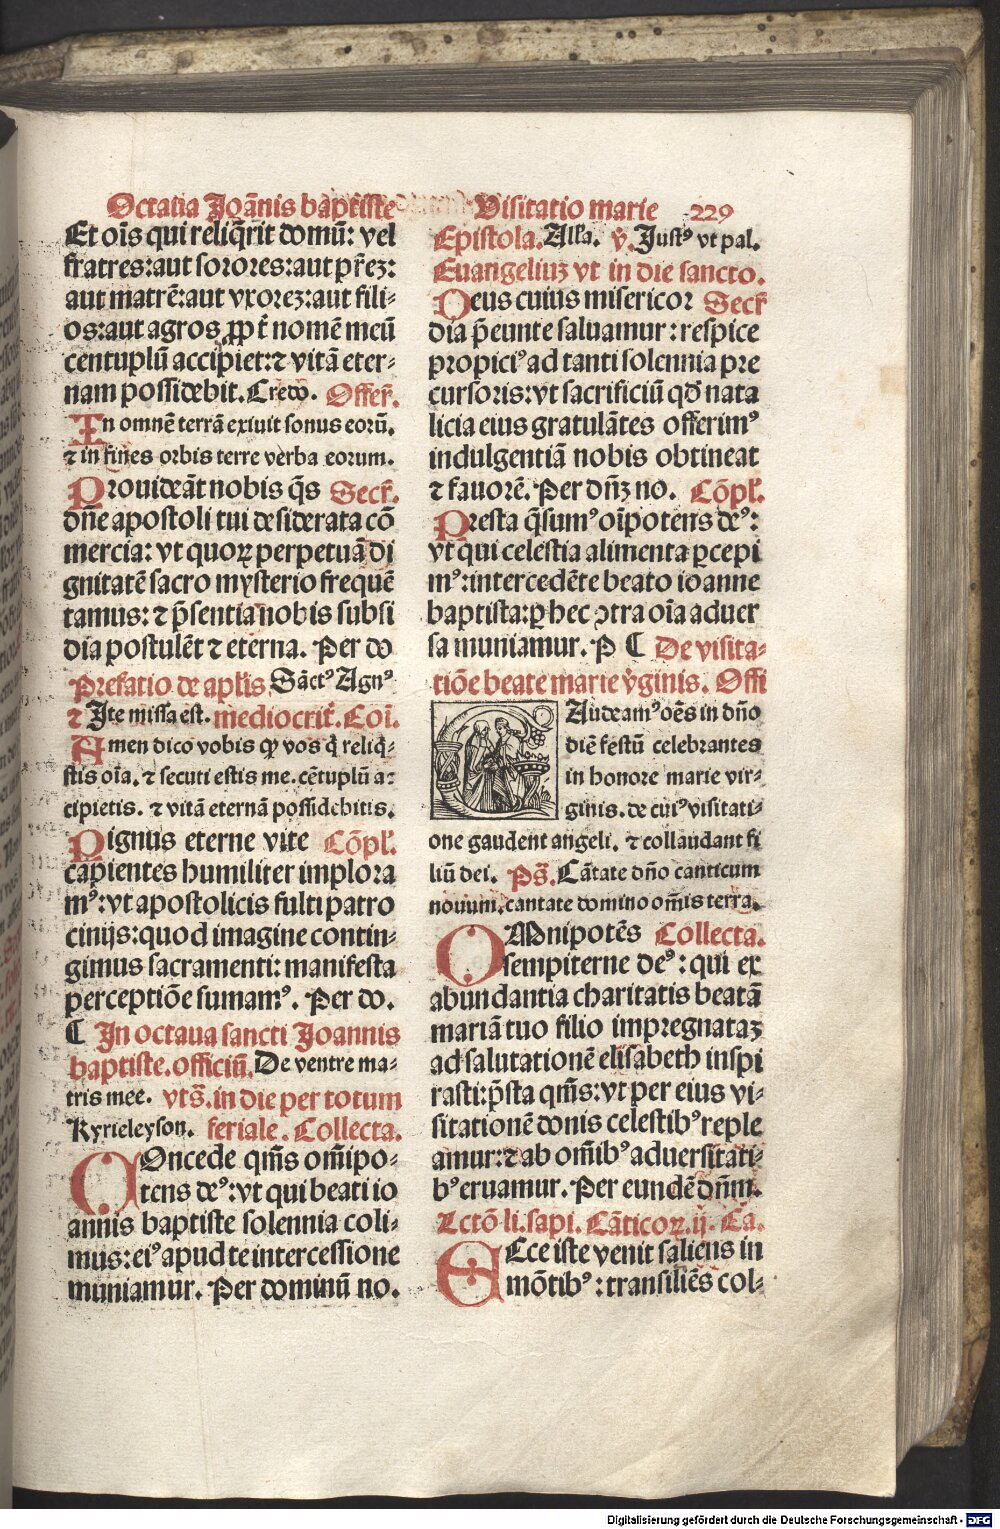 Octaua Joānis baptiste
Et oīs qui reliq̄rit domū: vel
fratres: aut sorores: aut pr̄ez:
aut matrē: aut vxorez: aut fili-
os: aut agros ꝓpt̄ nomē meū
centuplū accipiet: ⁊ vitā eter-
nam possidebit. Credo. Offer̄.
In omnē terrā exiuit sonus eorū.
⁊ in fines orbis terre verba eorum.
Prouideāt nobis q̄s Secr̄.
dn̄e apostoli tui desiderata cō
mercia: vt quoꝝ perpetuā di
gnitatē sacro mysterio frequē
tamus: ⁊ p̄sentia nobis subsi
dia postulēt ⁊ eterna. Per do
Prefatio de apl̄is. Sāctꝰ Agnꝰ
⁊ Ite missa est. mediocrit̄. Coī.
Amen dico vobis ꝙ vos q̄ reliq̄-
stis oīa. ⁊ secuti estis me. cētuplū a-
cipietis. ⁊ vitā eternā possidebitis.
Pignus eterne vite Cōpl̄.
capientes humiliter implora
mꝰ: vt apostolicis fulti patro
cinijs: quod imagine contin-
gimus sacramenti: manifesta
perceptiōe sumamꝰ. Per do.
¶ In octaua sancti Joannis
baptiste. officiū. De ventre ma-
tris mee. vts̄. in die per totum
Kyrieleyson. feriale. Collecta.
COncede qm̄s om̄ipo-
tens deꝰ: vt qui beati io
annis baptiste solennia coli-
mus: eiꝰ apud te intercessione
muniamur. Per dominū no.
Visitatio marie 229
Epistola. All'a. v̄. Justꝰ vt pal.
Euangeliuz vt in die sancto.
Deus cuius misericor Secr̄
dia p̄eunte saluamur: respice
propiciꝰ ad tanti solennia pre
cursoris: vt sacrificiū qd̄ nata
licia eius gratulātes offerimꝰ
indulgentiā nobis obtineat
⁊ fauorē. Per dn̄z no. Cōpl̄.
Presta q̄sumꝰ oīpotens deꝰ:
vt qui celestia alimenta ꝑcepi
mꝰ: intercedēte beato ioanne
baptista: ꝑ hec ꝯtra oīa aduer
sa muniamur. P C De visita-
tiōe beate marie v̄ginis. Offi
GAudeamꝰ oēs in dn̄o
diē festū celebrantes
in honore marie vir-
ginis. de cuiꝰ visitati-
one gaudent angeli. ⁊ collaudant fi
liū dei. Ps̄. Cātate dn̄o canticum
nouum. cantate domino om̄is terra.
OMnipotēs Collecta.
sempiterne deꝰ: qui ex
abundantia charitatis beatā
mariā tuo filio impregnataz
ad salutationē elisabeth inspi
rasti: p̄sta qm̄s: vt per eius vi-
sitationē donis celestibꝰ reple
amur: ⁊ ab om̄ibꝰ aduersitati-
bꝰ eruamur. Per eundē dn̄m.
Lctō li. sapi. Cāticoꝝ. ij. Ca.
ECce iste venit saliens in
mōtibꝰ: transiliēs col-
Digitalisierung gefördert durch die Deutsche Forschungsgemeinschaft - DFG